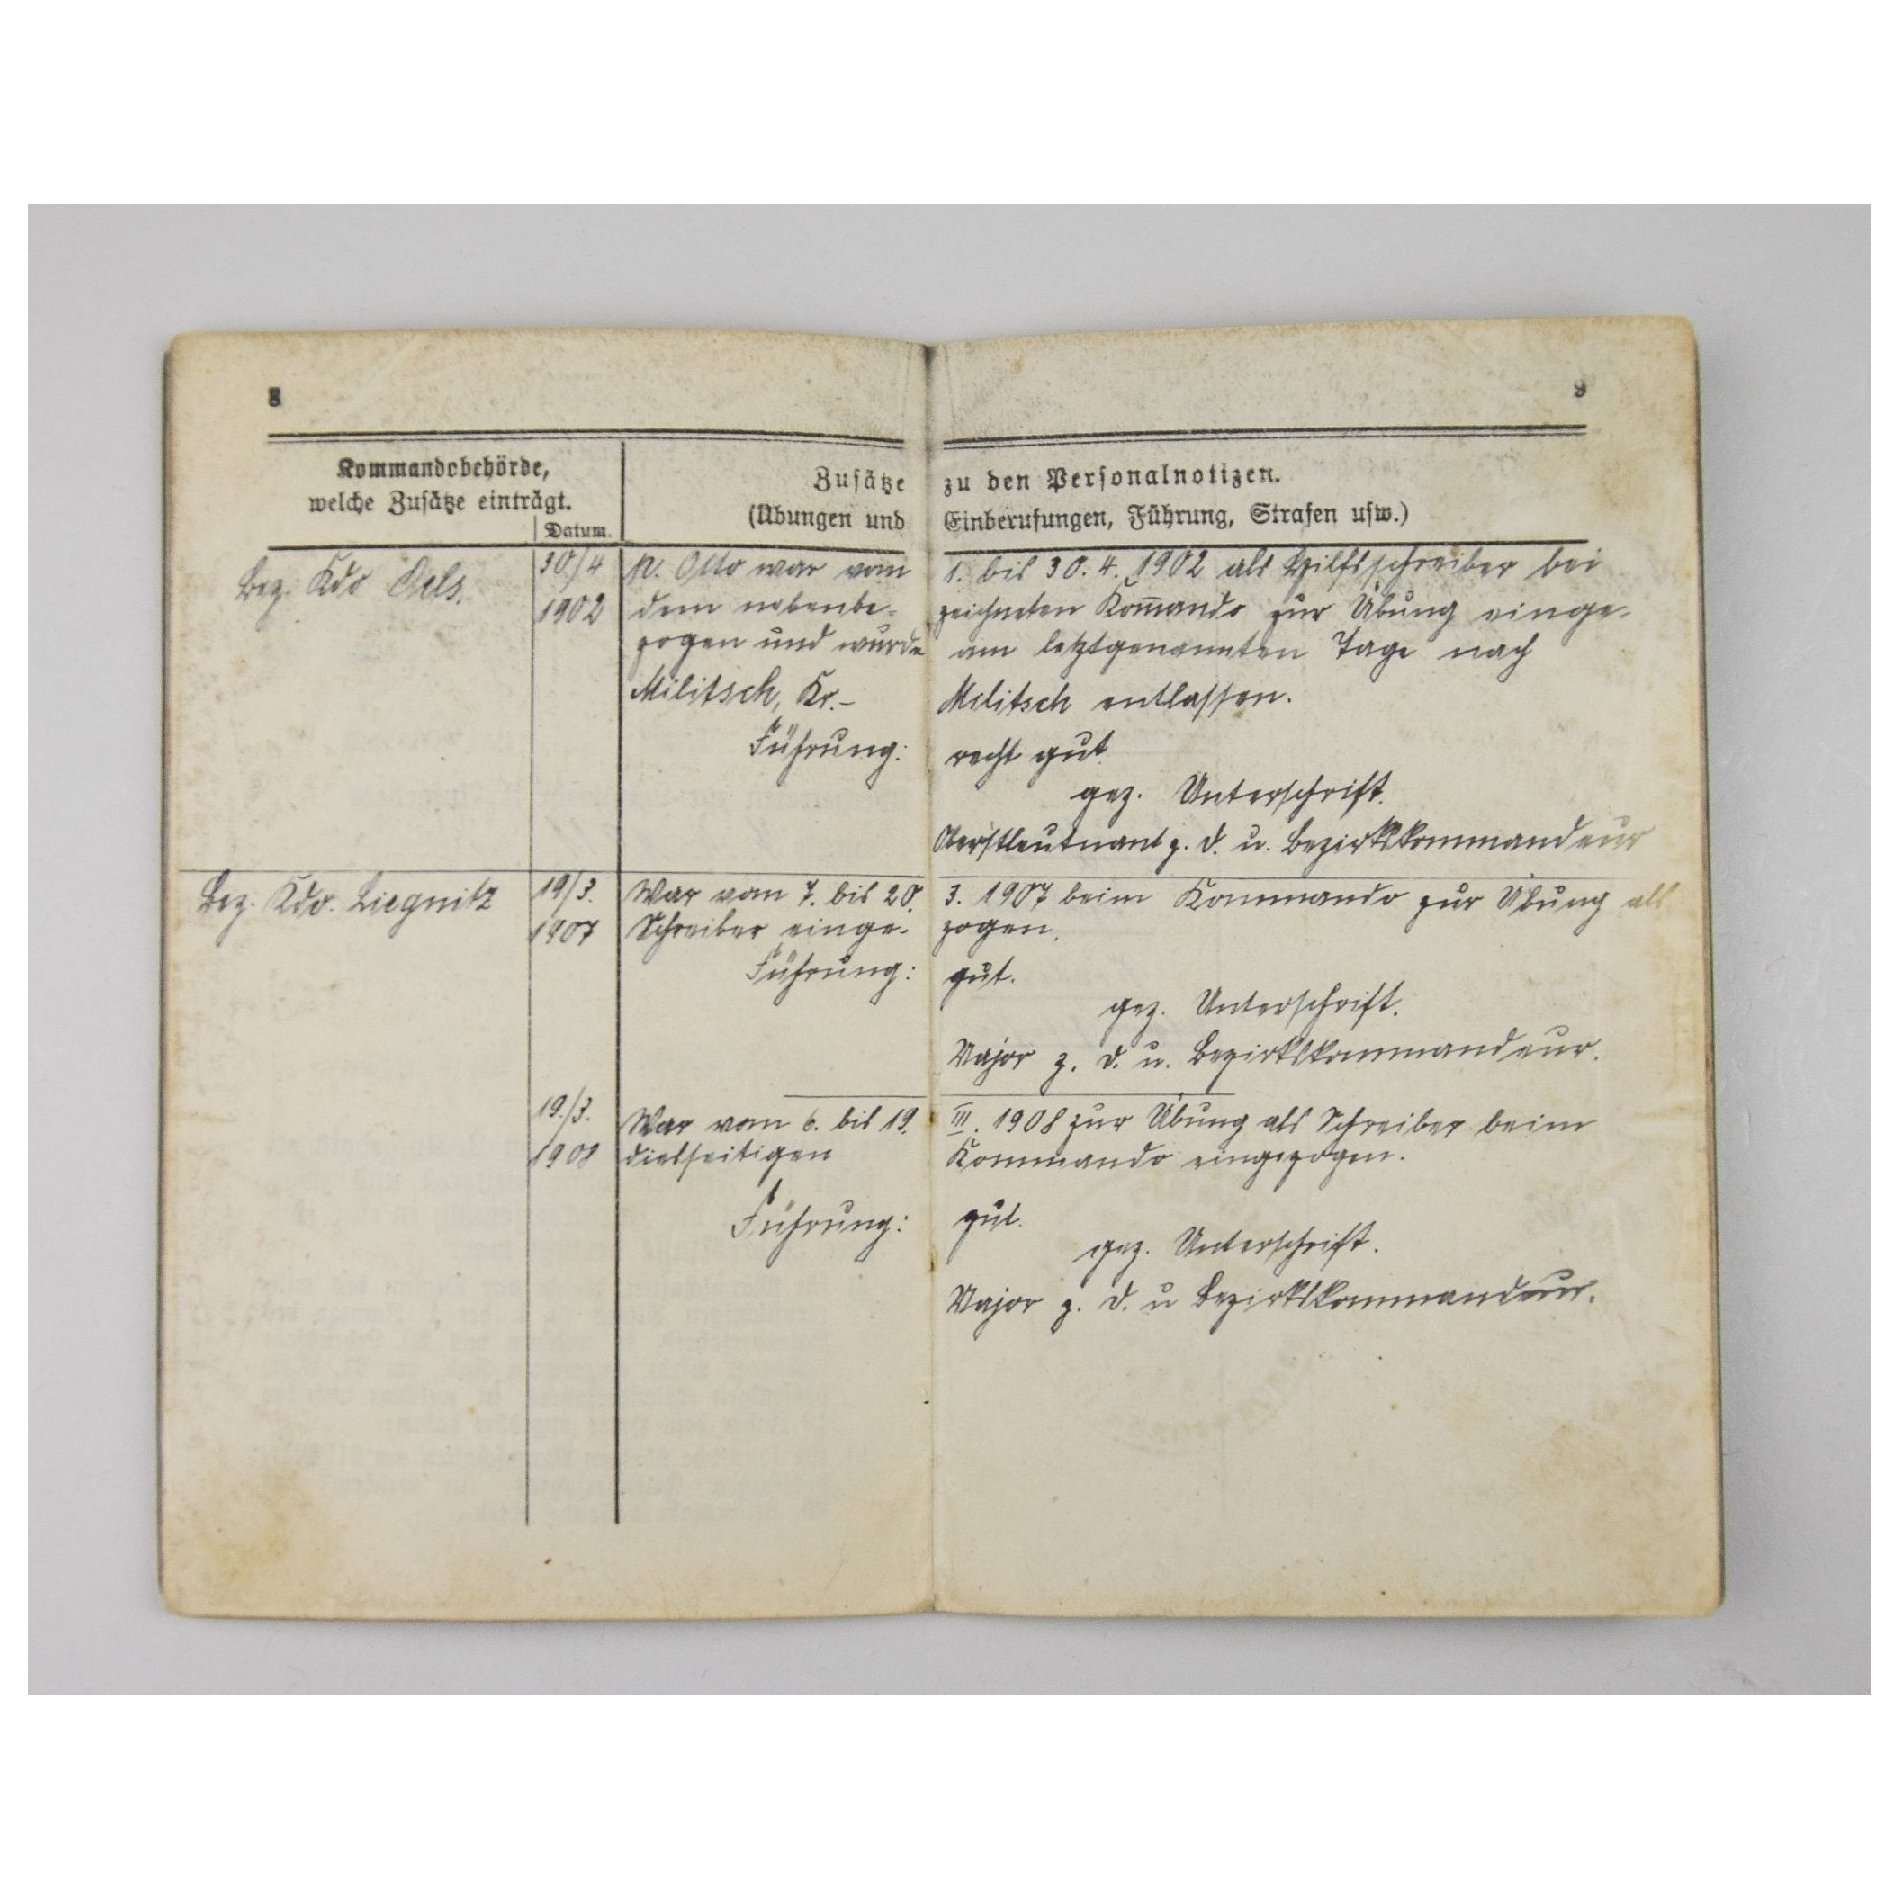 8
9
Kommandobehörde,
welche Zusätze einträgt.
Datum.
Zusätze zu den Personalnotizen.
(Übungen und Einberufungen, Führung, Strafen usw.)
Bez. Kdo Oels.
30/4
1902
p. Otto war vom 1. bis 30. 4. 1902 als Hilfsschreiber bei
dem nebenbe- zeichneten Kom̅ando zur Übung einge-
zogen und wurde am letztgenannten Tage nach
Militsch, Kr.- Militsch entlassen.
Führung: recht gut.
gez. Unterschrift.
Oberstleutnant z. D. u. Bezirkskommandeur
Bez. Kdo. Liegnitz
19/3.
1907
War vom 7. bis 20. 3. 1907 beim Kommando zur Übung als
Schreiber einge- zogen.
Führung: gut.
gez. Unterschrift.
Major z. D. u. Bezirkskommandeur.
19./3.
1908
War vom 6. bis 19. III. 1908 zur Übung als Schreiber beim
diesseitigen Kommando eingezogen.
Führung: gut.
gez. Unterschrift.
Major z. D. u Bezirkskommandeur.